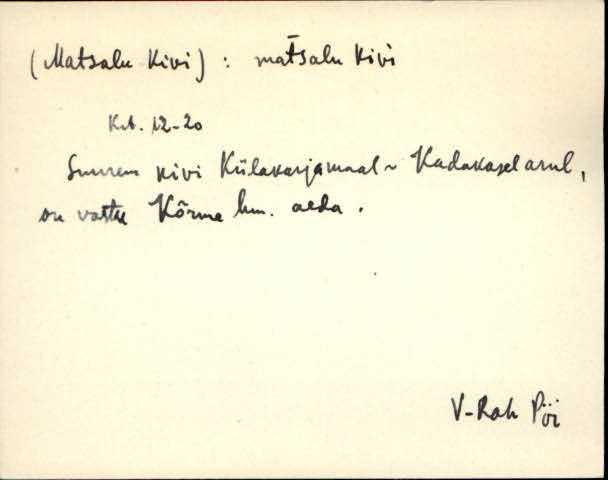 (Matsalu Kivi) : mat̄salu kivi
Krt. 12-20
Suurem kivi Külakarjamaal ~ Kadakaselarul,
on vastu Kõrma hm. aeda.
V-Rah Pöi